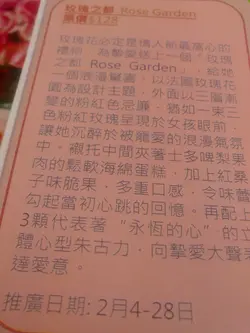 玫瑰之都 Rose Garden
原價$128
玫瑰花必定是情人節最窩心的
禮物,為摯愛送上一個「玫瑰
之都 Rose Garden」,給她
一個浪漫驚喜,以法國玫瑰花
園為設計主題,外面以三層漸
變的粉紅色忌廉,猶如一束三
色粉紅玫瑰呈現於女孩眼前,
讓她沉醉於被寵愛的浪漫氣氛
中。襯托中間夾著士多啤梨果
肉的鬆軟海綿蛋糕,加上紅桑
子味脆果,多重口感,令味蕾
勾起當初心跳的回憶。再配上
3顆代表著“永恆的心”的立
體心型朱古力,向摯愛大聲表
達愛意。
推廣日期: 2月4-28日